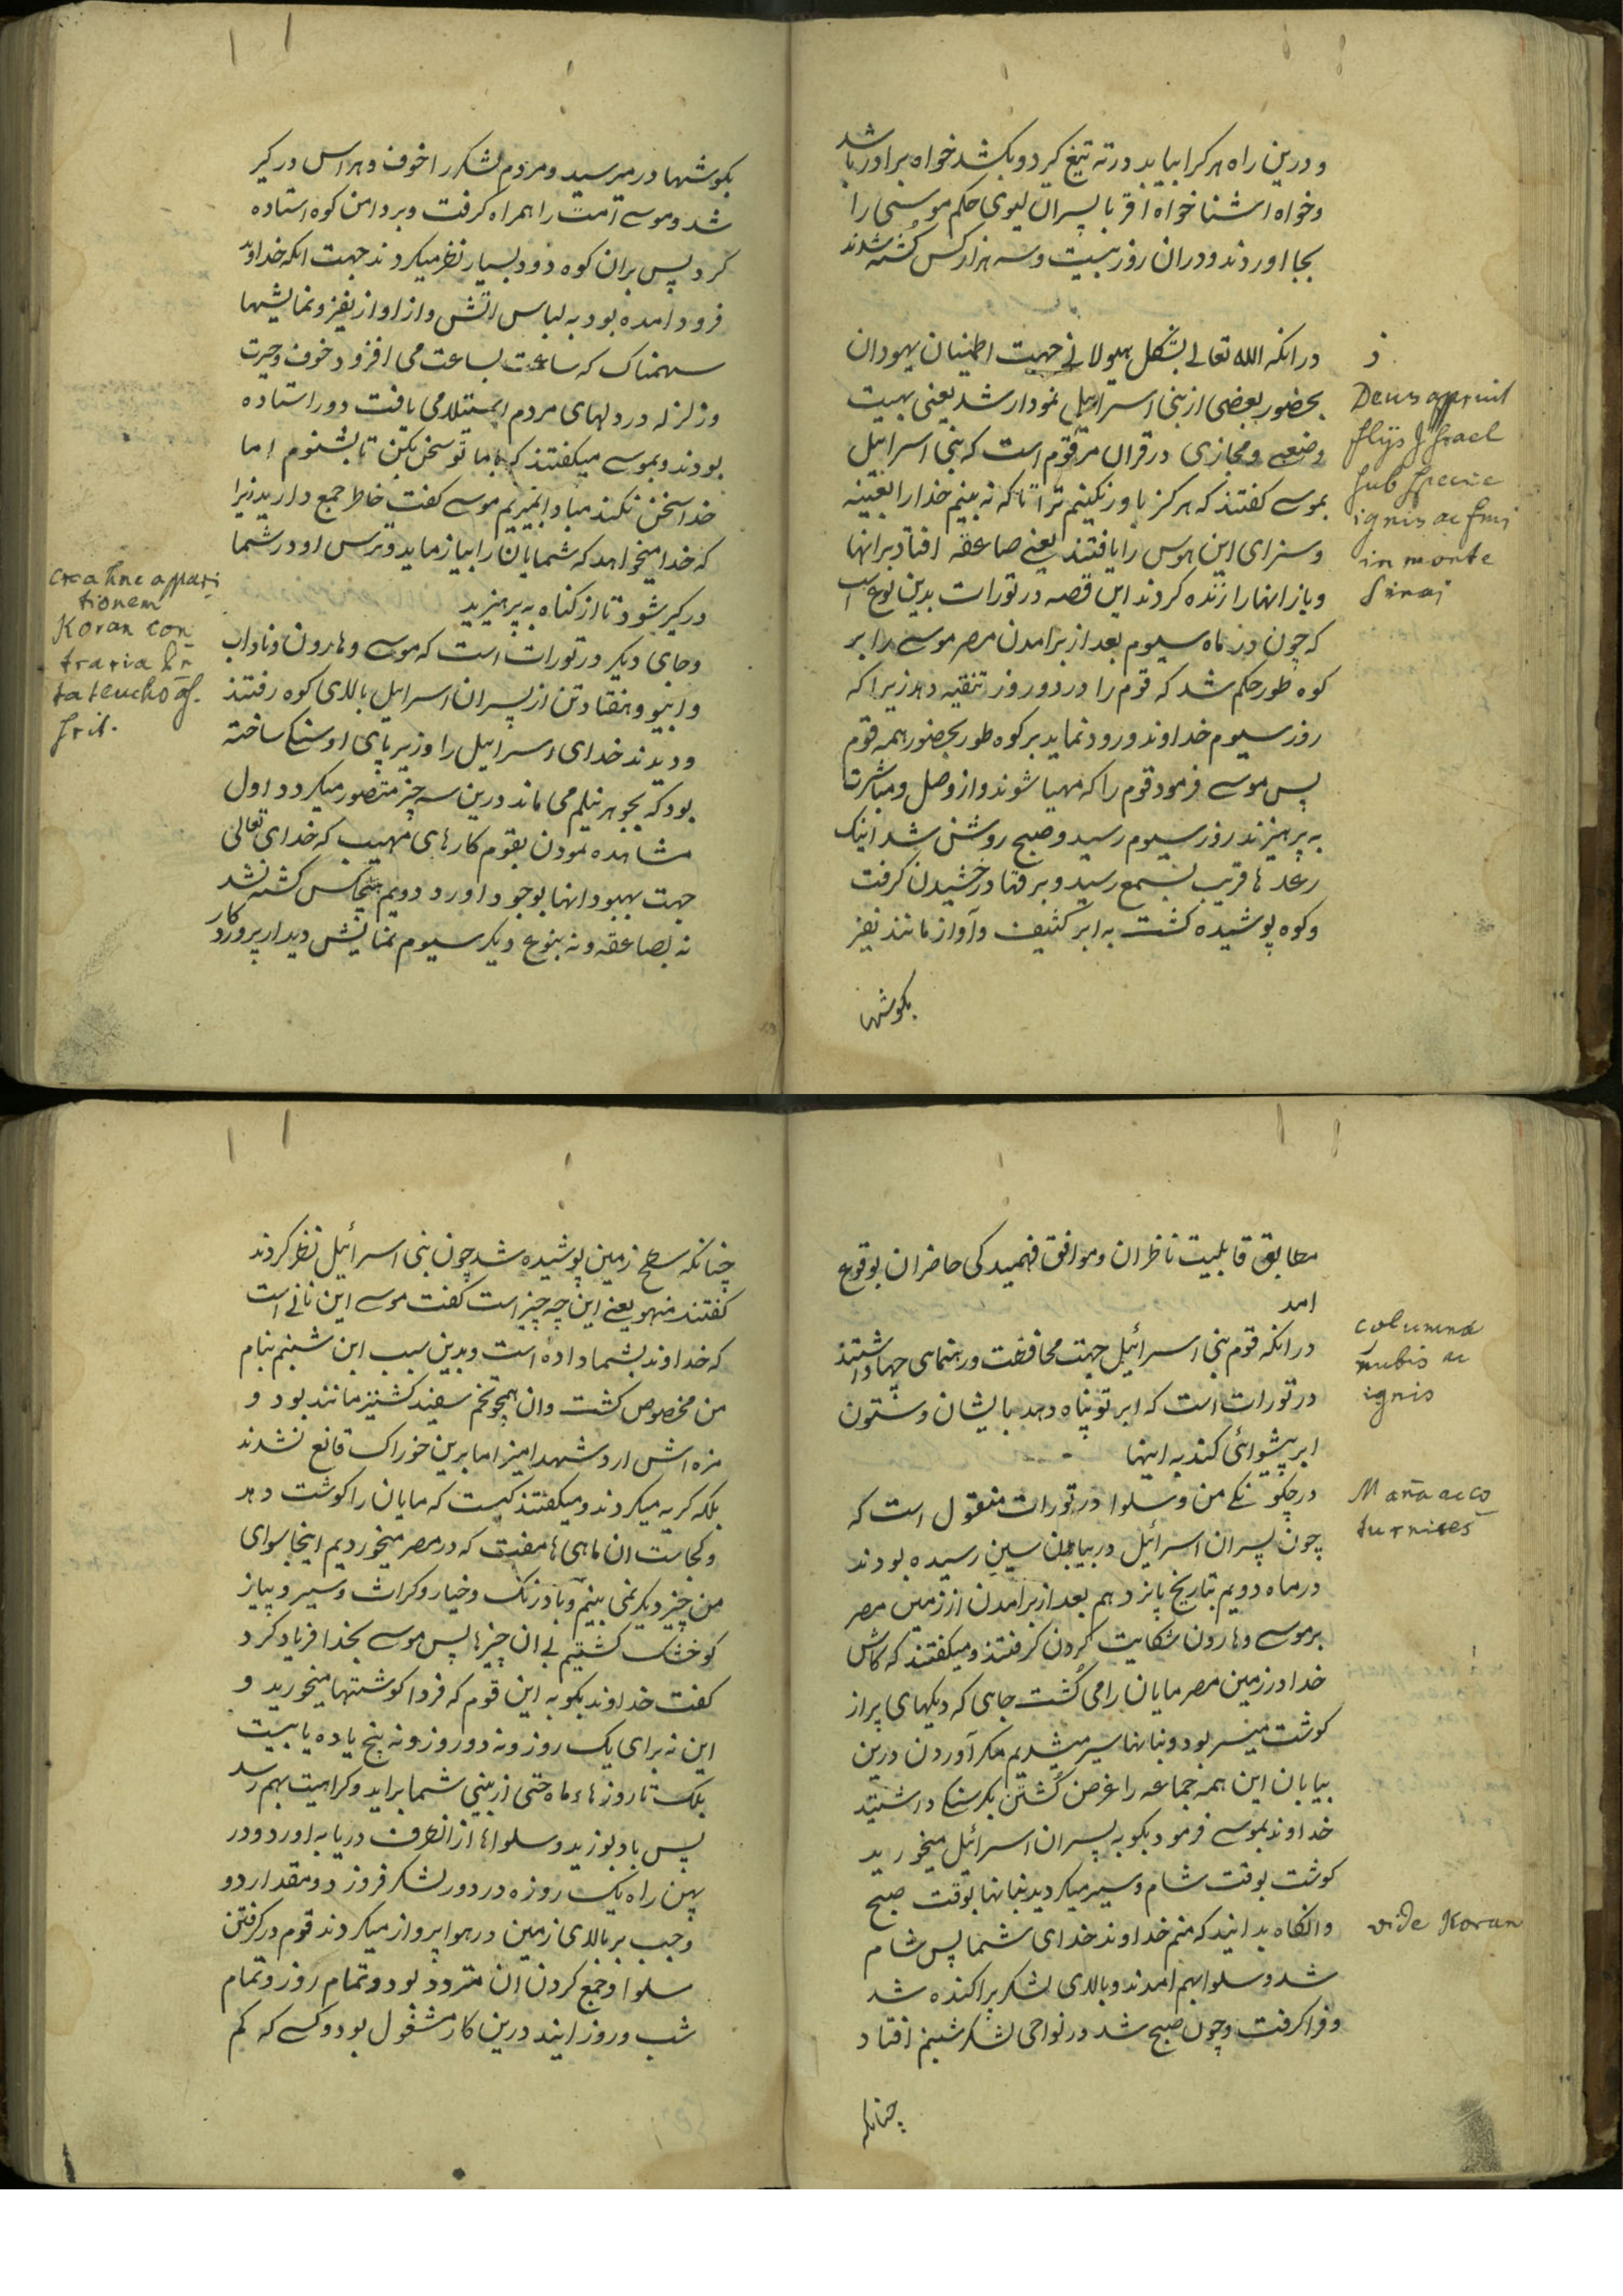 و درین راه هر کرا بیاید در ته تیغ گیرد و بکشد خواه برادر باشد
و خواه اشنا خواه اقربا پسران لیوی حکم موسی را
بجا اوردند و دران روز بیست و سه هزار کس کشته شدند
در انکه الله تعالی بشکل هیولانی جهت اطمینان یهودان
بحضور بعضی از بنی اسراییل نمودار شد یعنی بهیت
وضعی و مجازی در قران مرقوم است که بنی اسراییل
بموسی کفتند که هرکز باور نکنیم ترا تا که نه بینم خدا را بعینه
و سزای این هوس را یافتند یعنی صاعقه افتاد بر انها
و باز انها را زنده کردند این قصه در تورات بدین نوع است
که چون در ماه سیوم بعد از برامدن مصر موسی را بر
کوه طور حکم شد که قوم را در دو روز تنقیه دهد زیرا که
روز سیوم خداوند ورود نماید بر کوه طور بحضور همه قوم
پس موسی فرمود قوم را که مهیا شوند و از وصل و مباشرت
به پرهیزند روز سیوم رسید و صبح روشن شد اینک
رعد ها قریب بسمع رسید و برقها درخشیدن کرفت
و کوه پوشیده کشت به ابر کثیف و آواز مانند نفیر
بکوشها
ز
Deus apparuit
filijs Jsrael
sub specie
ignis ac fumi
in monte
Sinai
بکوشها در میرسید و مردم لشکر را خوف و هراس در کیر
شد و موسی امت را همراه کرفت و بر دامن کوه استاده
کرد پس بران کوه دود بسیار نظر میکردند جهت انکه خداوند
فرود امده بود به لباس اتش و از اواز نفیر و نمایشها
سهمناک که ساعت بساعت می افزود خوف و حیرت
و زلزله در دلهای مردم استیلا می یافت دور استاده
بودند و بموسی میکفتند که با ما تو سخن بکن تا بشنوم اما
خدا سخن نکند مبادا بمیریم موسی کفت خاطر جمع دارید زیرا
که خدا میخواهد که شمایان را بیازماید و ترس او در شما
در کیر شود تا از کناه به پرهیزید
و جای دیکر در تورات است که موسی و هارون و ناداب
و ابیو و هفتاد تن از پسران اسراییل بالای کوه رفتند
و دیدند خدای اسراییل را و زیر پای او سنکی ساخته
بود که بجوهر نیلم می ماند درین سه چیز متصور میکردد اول
مشاهده نمودن بقوم کارهای مهیب که خدای تعالی
جهت بهبود انها بوجود اورد دویم هیچکس کشته نشد
نه بصاعقه و نه بنوع دیکر سیوم نمایش دیدار پروردکار
circa hanc appari
tionem
Koran con
traria Pe
tateucho as
serit.
مطابق قابلیت ناظران و موافق فهمیدکی حاضران بوقوع
امد
در انکه قوم بنی اسرائیل جهت محافظت و رهنمای چها داشتند
در تورات است که ابر تو پناه دهد با یشان و ستون
ابر پیشوائی کند به اینها
در چکونکی من و سلوا در تورات منقول است که
چون پسران اسرائیل در بیابان سین رسیده بودند
در ماه دویم بتاریخ پانزدهم بعد از برامدن از زمین مصر
بر موسی و هارون شکایت کردن کرفتند و میکفتند که کاش
خدا در زمین مصر مایان را می کشت جای که دیکهای پر از
کوشت میسر بود و بنانها سیر میشدیم مکر آوردن درین
بیابان این همه جماعه را غرض کشتن بکرسنکی داشتید
خداوند بموسی فرمود بکو به پسران اسرائیل میخورید
کوشت بوقت شام و سیر میکردید بنانها بوقت صبح
و انکاه بدانید که منم خداوند خدای شما پس شام
شد و سلوا بهم امدند و بالای لشکر پراکنده شد
و فرا کرفت و چون صبح شد در نواحی لشکر شبنم افتاد
چنانکه
columna
nubis ac
ignis
Mana ac co
turnices
vide Koran
چنانکه سطح زمین پوشیده شد چون بنی اسرائیل نظر کردند
کفتند منهو یعنی این چه چیز است کفت موسی این نانی است
که خداوند بشما داده است و بدین سبب این شبنم بنام
من مخصوص کشت و ان همچو تخم سفید کشنیز مانند بود و
مزه اش ارد شهد امیز اما برین خوراک قانع نشدند
بلکه کریه میکردند و میکفتند کیست که مایان را کوشت دهد
و کجاست ان ماهی ها مفت که در مصر میخوردیم اینجا سوای
من چیز دیکر نمی بینیم و بادرنک و خیار و کراث و سیر و پیاز
کو خشک کشتیم بی ان چیزها پس موسی بخدا فریاد کرد
کفت خداوند بکو به این قوم که فردا کوشتها میخورید و
این نه برای یک روز و نه دو روز و نه پنج یا ده یا بیست
بلک تا روزهاء ماه حتی از بینی شما براید و کراهیت بهم رسد
پس باد بوزید و سلواها از انطرف دریا به اورد و در
پهن راه یک روزه در دور لشکر فروز د و مقدار دو
وجب بر بالای زمین در هوا پرواز میکردند قوم در کرفتن
سلوا و جمع کردن ان متردد بود و تمام روز و تمام
شب و روز ایند درین کار مشغول بود و کسی که کم